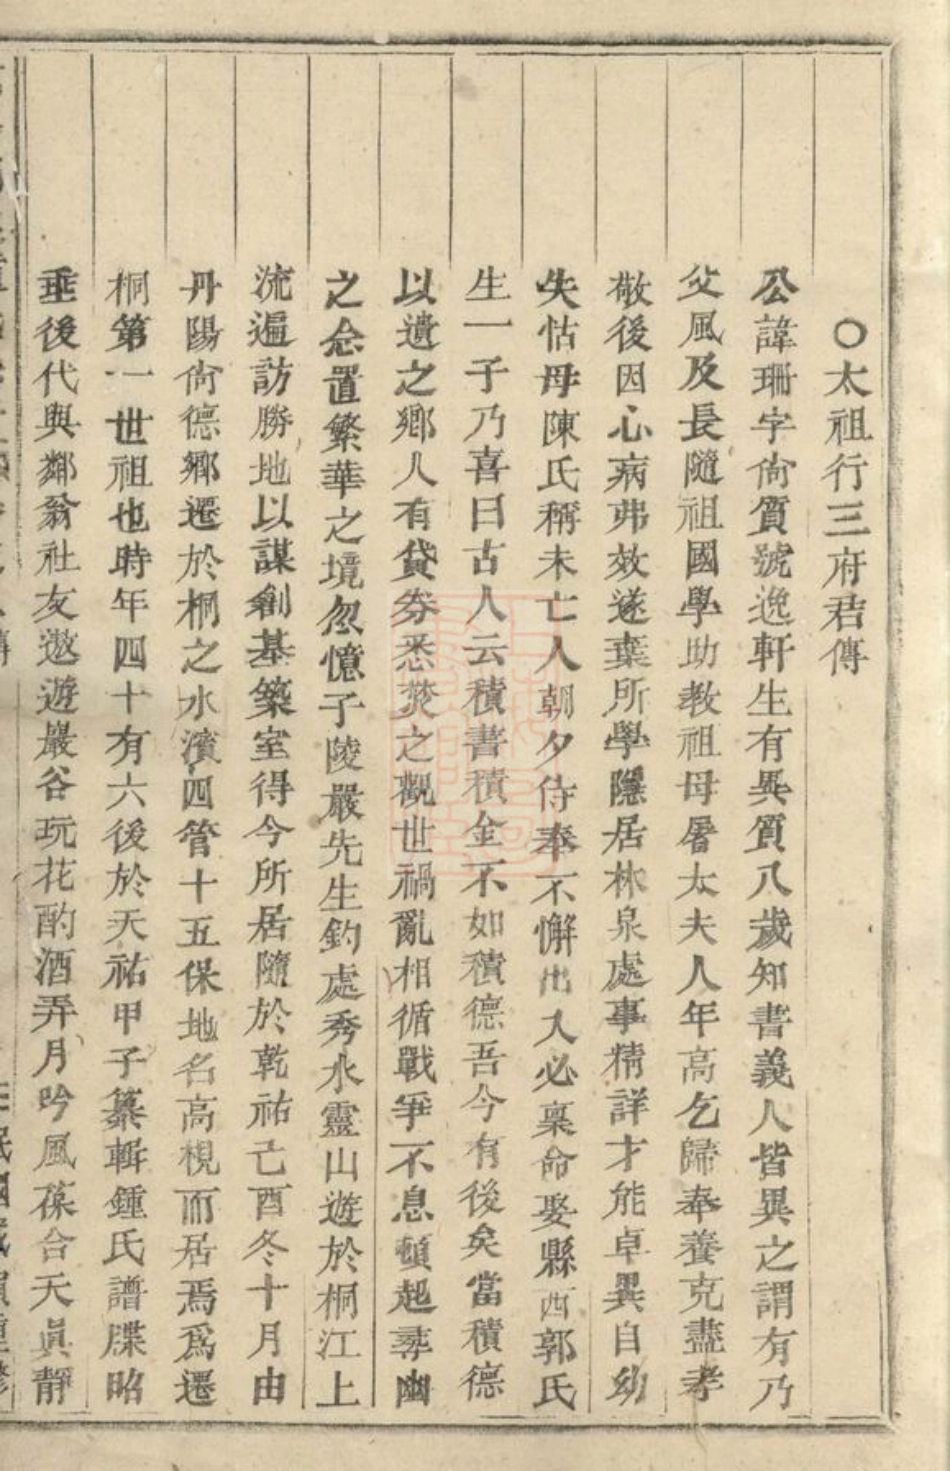 ○太祖行三府君傳
公諱珊字尙質號逸軒生有異質八歲知書義人皆異之謂有乃
父風及長隨祖國學助教祖母屠太夫人年高乞歸奉養克盡孝
敬後因心病弗效遂棄所學隱居林泉處事精詳才能卓異自幼
失怙母陳氏稱未亡人朝夕侍奉不懈出入必稟命娶縣西郭氏
生一子乃喜曰古人云積書積金不如積德吾今有後矣當積德
以遺之鄉人有貸券悉焚之觀世禍亂相循戰爭不息頓起尋幽
之念置繁華之境忽憶子陵嚴先生釣處秀水靈山遊於桐江上
流遍訪勝地以謀創基築室得今所居隨於乾祐己酉冬十月由
丹陽尙德鄉遷於桐之水濱四管十五保地名高梘而居焉爲遷
桐第一世祖也時年四十有六後於天祐甲子纂輯鍾氏譜牒昭
垂後代與鄰翁社友遨遊巖谷玩花酌酒弄月吟風葆合天眞靜